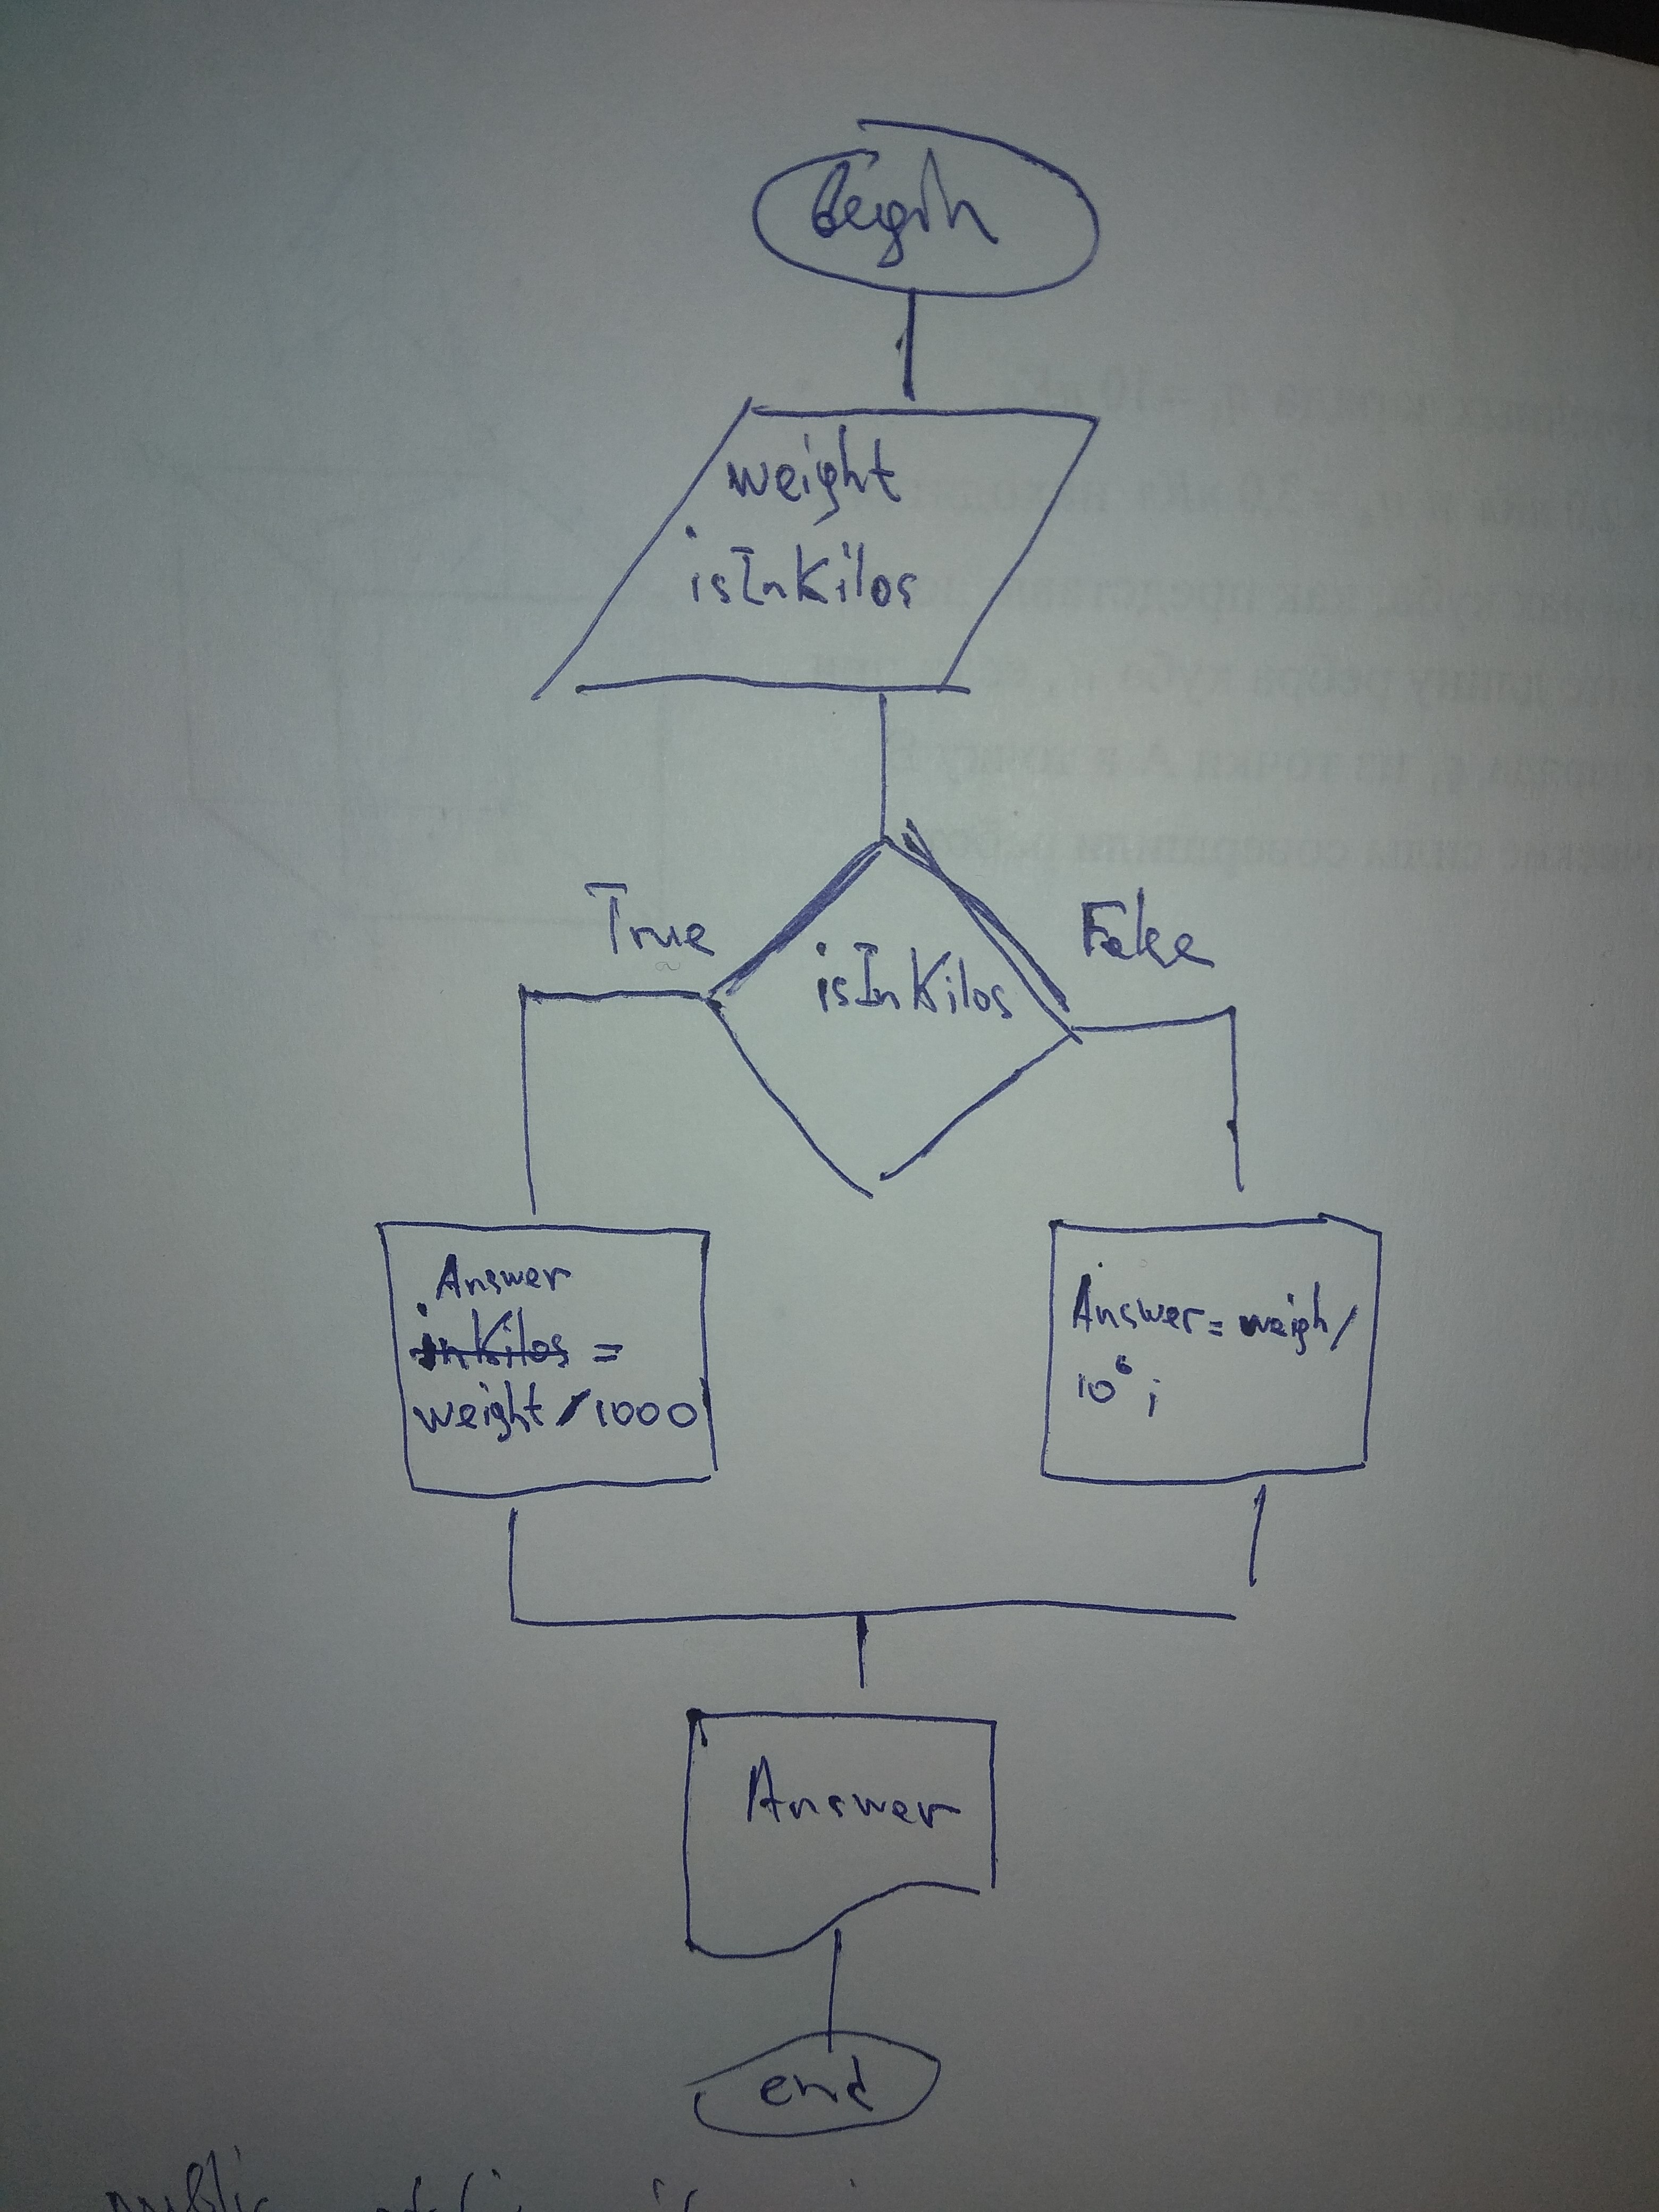 Begin
weight
isInKilos
True
False
isInKilos
Answer
inKilos =
weight/1000
Answer = weigh/
10⁶;
Answer
end
public